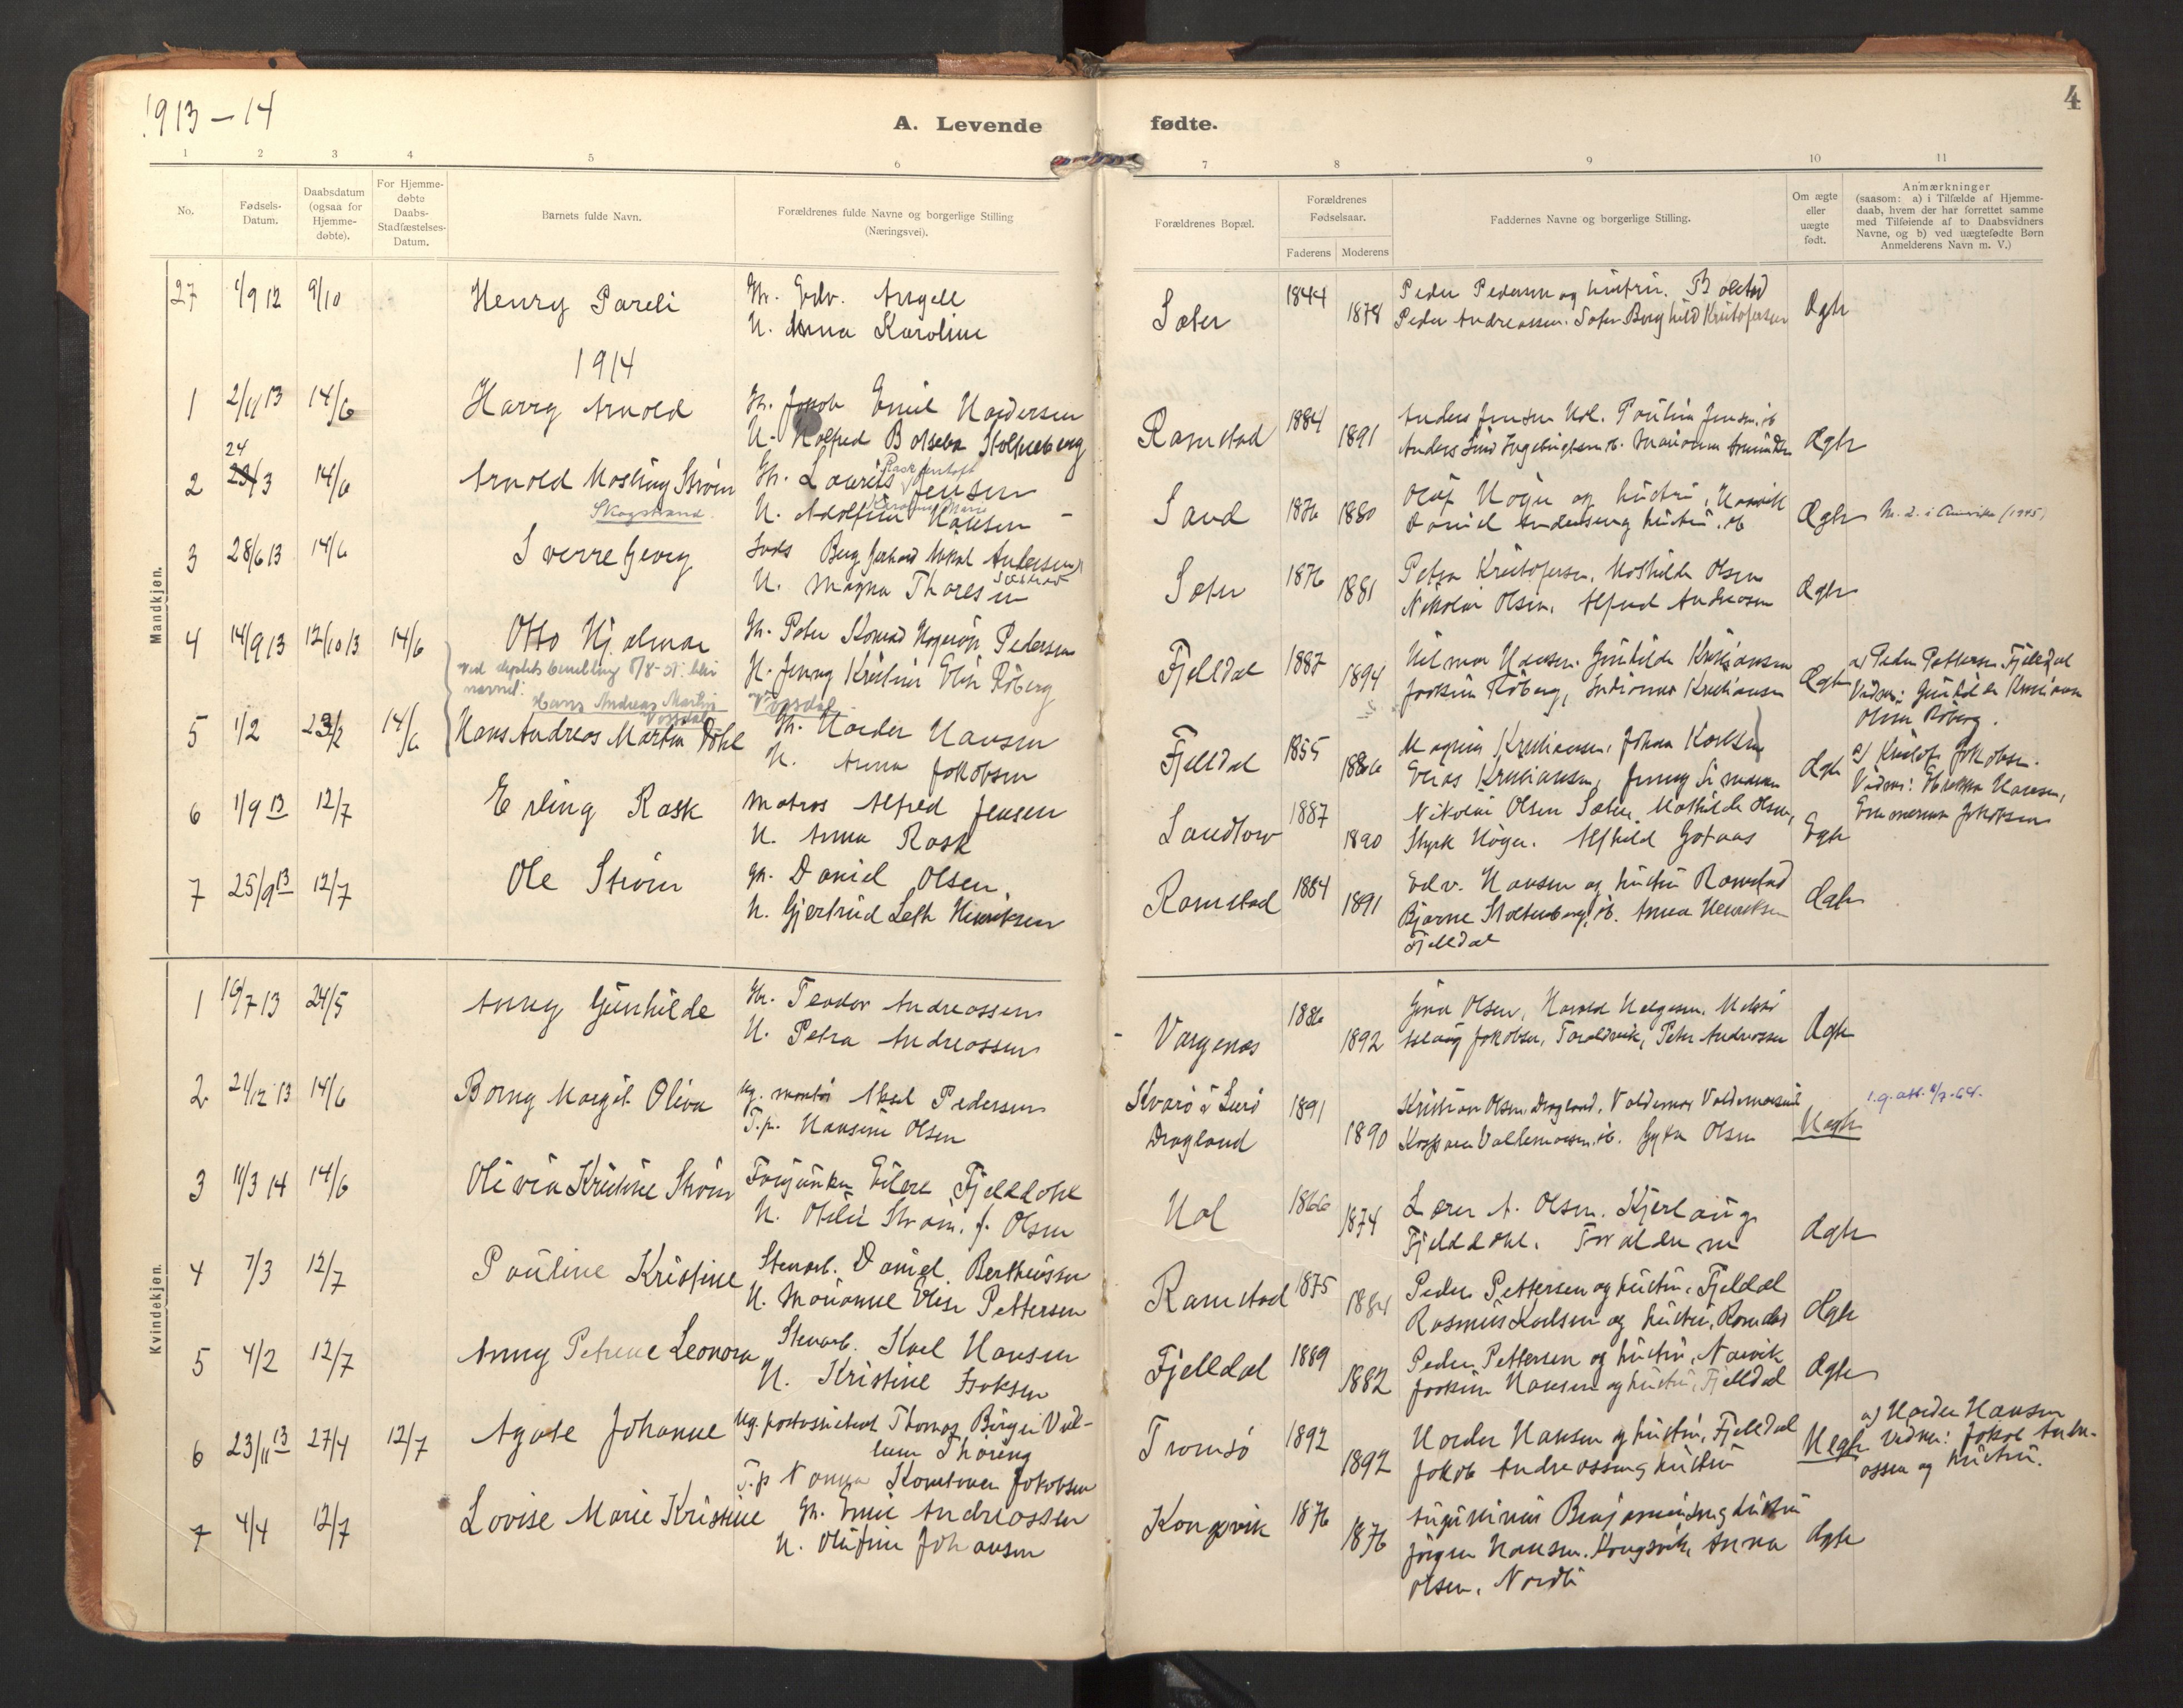 1913-14
A. Levende fødte.
4
1 2 3 4 5 6 7 8 9 10 11
No.
Fødsels-
Datum.
Daabsdatum
(ogsaa for
Hjemme-
døbte).
For Hjemme-
døbte
Daabs-
Stadfæstelses-
Datum.
Barnets fulde Navn.
Forældrenes fulde Navne og borgerlige Stilling
(Næringsvei).
Forældrenes Bopæl.
Forældrenes
Fødselsaar.
Faderens Moderens
Faddernes Navne og borgerlige Stilling.
Om ægte
eller
uægte
født.
Anmærkninger
(saasom: a) i Tilfælde af Hjemme-
daab, hvem der har forrettet samme
med Tilføiende af to Daabsvidners
Navne, og b) ved uægtefødte Børn
Anmelderens Navn m. V.)
Mandkjøn.
27 1/9 12 9/10 Henry Pareli
Gm. Edv. Angell
H. Anna Karoline
Sæter 1844 1878
Peder Pedersen og hustru
Peder Andreassen. Sæter Borghild Kristofersen
Ægte
1914
1 2/11 13 14/6 Harry Arnold
Gm. Jakob Emil Hardersen
H. Stoltenberg
Ramstad 1884 1891
Ægte
2 24 23/3 14/6 Arnold Strøm
Skogstrand
Gm. Laurits Jensen
H. Adolfine Hansen
Sand 1876 1880
Olaf og hustru, Narvik
Daniel Andersen og hustru. ib
Ægte
i Amerika (1945)
3 28/6 13 14/6 Sverre Georg
Andersen
H. Magna Thoresen
Sæter 1876 1881
Petra Kristofersen, Mathilde Olsen
Nikolai Olsen, Alfred Andreasen
Ægte
4 14/9 13 12/10 13 14/6 Otto Hjalmar
navnet:
Hans Andreas Martin
Vossdal
Gm. Peter Konrad Pedersen
H. Jenny Kristine Elise Råberg
Vossdal
Fjelldal 1887 1894
Hilmar Hansen. Gunhilde Kristiansen
Joakim Råberg, Kristiansen
Ægte
a) Peder Pettersen Fjelldal
Vidner: Gunhilde Kristiansen
Råberg.
5 1/2 23/2 14/6 Hans Andreas Martin Dahl
Gm. Harder Hansen
H. Anna Jakobsen
Fjelldal 1855 1866
Magnus Kristiansen, Johan Karlsen
Elias Kristiansen, Jenny Simonsen
Ægte
a) Kristofer Jakobsen.
Vidner: Hansen,
Jakobsen
6 1/9 13 12/7 Erling Rask
Matros Alfred Jensen
H. Anna Rask
Sandtorv 1887 1890
Nikolai Olsen Sæter, Mathilde Olsen,
Styrk Høgei. Alfhild Gotaas
Egte
7 25/9 13 12/7 Ole Strøm
Gm. Daniel Olsen
H. Gjertrud Leth Henriksen
Ramstad 1884 1891
Edv. Hansen og hustru Ramstad
Bjarne Stoltenberg, ib. Anna Henriksen
Fjelldal
Ægte
Kvindekjøn.
1 16/7 13 24/5 Anny Gunhilde
Gm. Teodor Andreassen
H. Petra Andreassen
Vargenæs 1886 1892
Gina Olsen, Harald Helgesen,
Aslaug Jakobsen, Taraldsvik, Peter Andreassen
Ægte
2 21/12 13 14/6 Borny Margit Oliva
Ug. montør Aksel Pedersen
T.p. Hansine Olsen
Kvarø i Lurø
Dragland
1891 1890
Kristian Olsen Dragland, Valdemar Valdemarsen
Kaspara Valdemarsen. ib. Gyda Olsen
Uægte
3 11/3 14 14/6 Olivia Kristine Strøm
Eilert Fjelldahl
H. Otelie Strøm, f. Olsen
Hol 1866 1874
Lærer A. Olsen. Kjerlaug
Fjelddahl. Forældrene
Ægte
4 7/3 12/7 Pauline Kristine
Stenarb. Daniel Bertheussen
H. Marianne Elise Pettersen
Ramstad 1875 1884
Peder Pettersen og hustru, Fjeldal
Rasmus Karlsen og hustru, Ramstad
Ægte
5 4/2 12/7 Anny Petrene Leonora
Stenarb. Karl Hansen
H. Kristine Isaksen
Fjelldal 1889 1882
Peder Pettersen og hustru, Narvik
Joakim Hansen og hustru, Fjelldal
Ægte
6 23/11 13 27/4 12/7 Agate Johanne
Ug. postassistent Thomas Birger Vil-
lum Thoring
T.p Nanna Konstanse Jakobsen
Tromsø 1892 1892
Harder Hansen og hustru, Fjelldal
Jakob Andreassen og hustru
Uegte
a) Harder Hansen
Vidner: Jakob Andre-
assen og hustru.
7 4/4 12/7 Lovise Marie Kristine
Gm. Emil Andreassen
H. Olufine Johansen
Kongsvik 1876 1876
Benjaminsen og hustru
Jørgen Hansen. Kongsvik Anna
Olsen, Nordli
Ægte